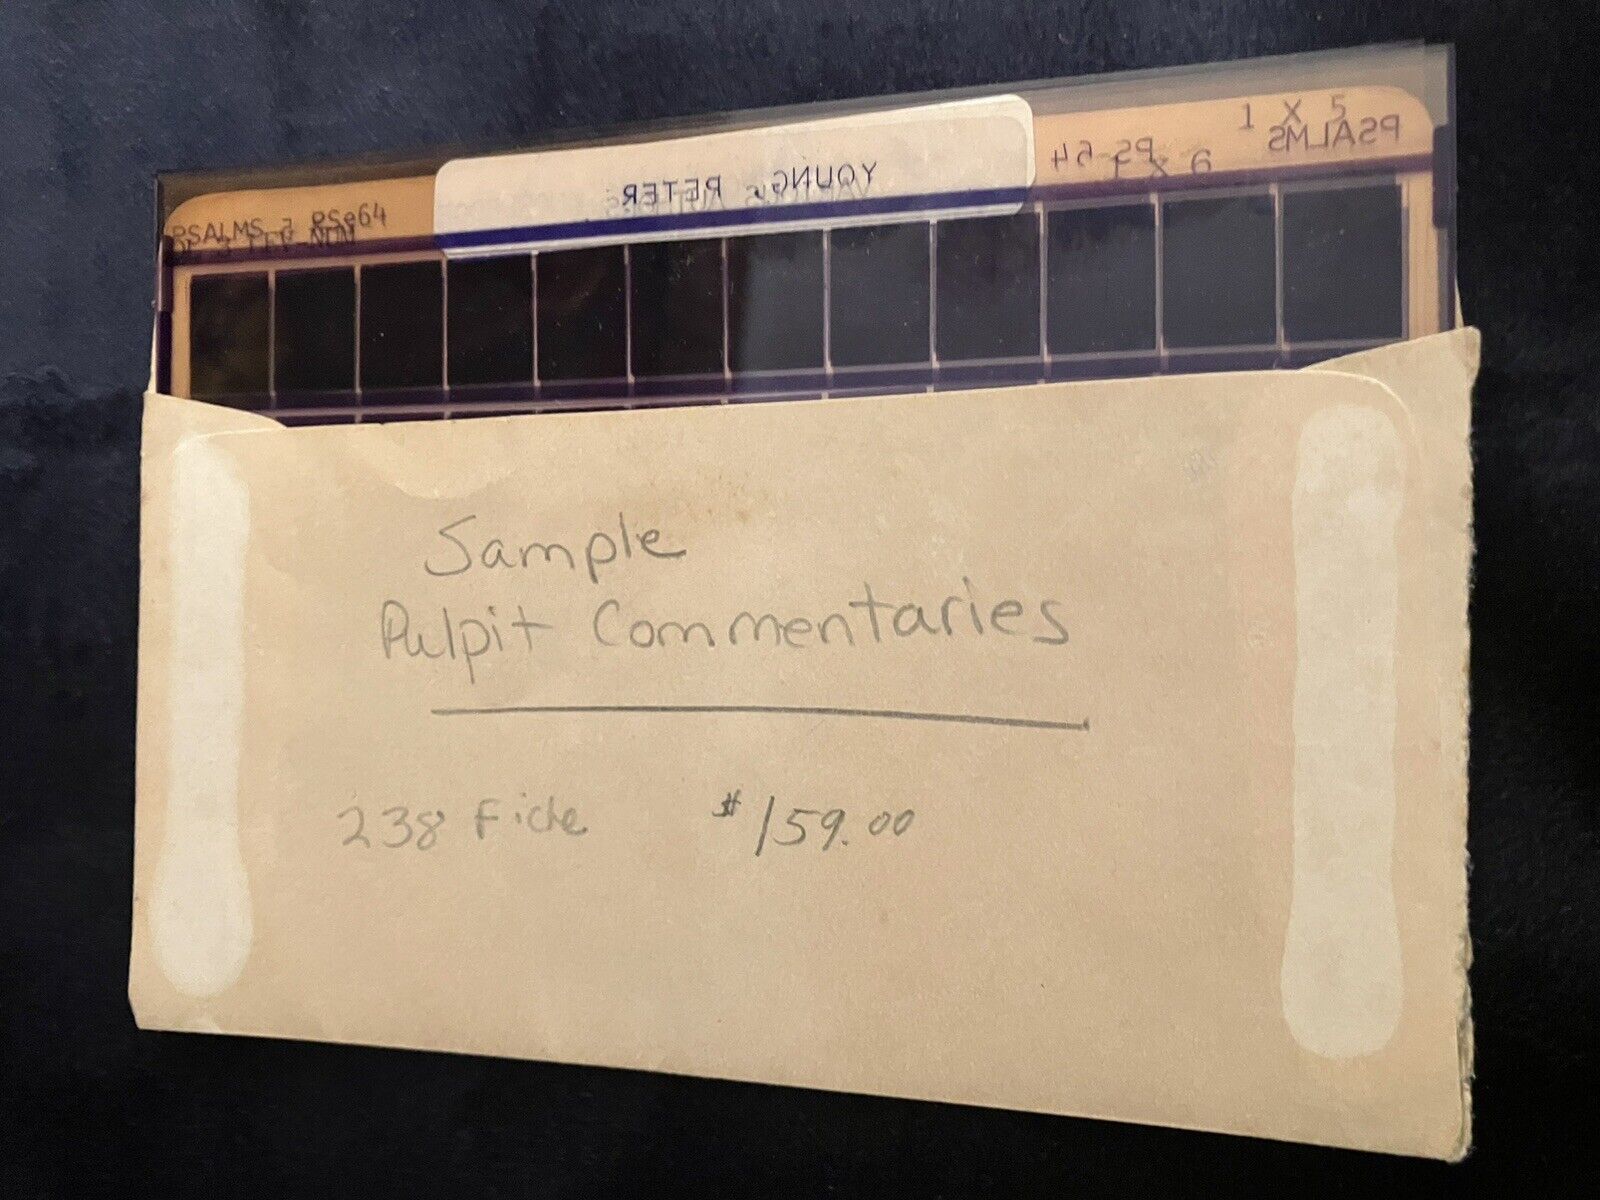 1 X 5
PSALMS
PS 64
1 X 6
YOUNG, PETER
PSALMS
Sample
Pulpit Commentaries
238 Fiche $159.00